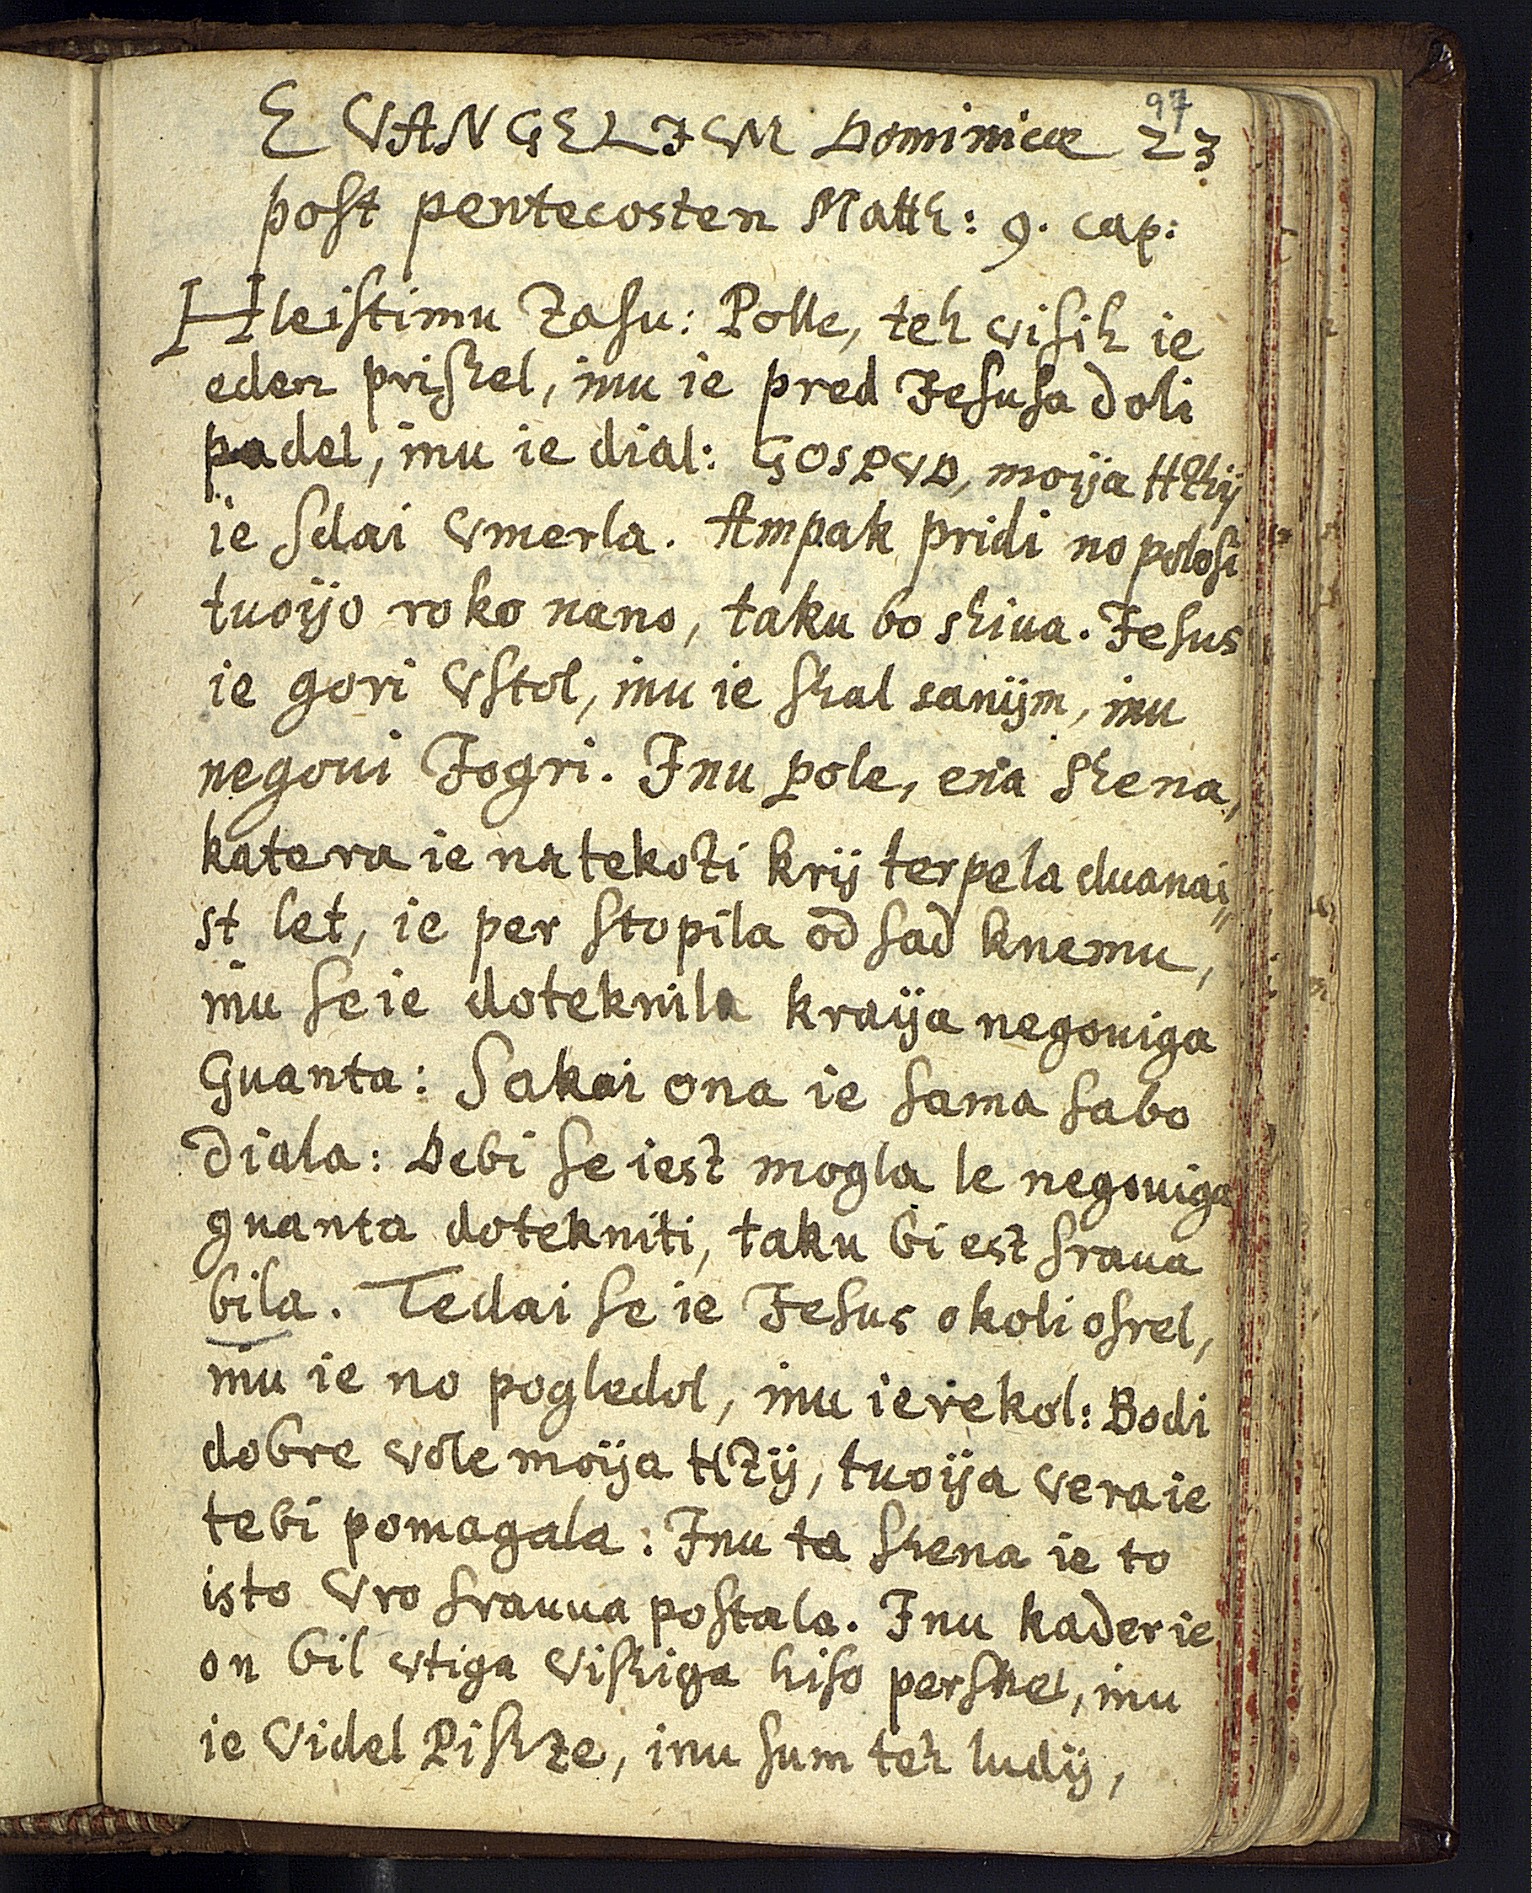 97
EVANGELIVM Dominicæ 23
post pentecosten Matth: 9. cap:
Hleistimu Zasu: Polle, teh visih ie
eden prishel, inu ie pred Jesusa doli
padel, inu ie dial: GOSPVD, moija Hzhij
ie sdai vmerla. Ampak pridi no polosi
tuoijo roko nano, taku bo shiua. Jesus
ie gori vstol, inu ie shal sanijm, inu
negoui Jogri. Inu pole, ena shena,
katera ie natekozi krij terpela duanai,,
st let, ie per stopila od sad knemu,
inu se ie doteknila kraija negouiga
Guanta: Sakai ona ie sama sabo
diala: Debi se iest mogla le negouiga
guanta dotekniti, taku bi est sraua
bila. Tedai se ie Jesus okoli osrel,
inu ie no pogledol, inu ie rekol: Bodi
dobre vole moija Hzij, tuoija vera ie
tebi pomagala: Inu ta shena ie to
isto vro srauua postala. Inu kader ie
on bil vtiga Vishiga hiso pershel, inu
ie videl Pishze, inu sum teh ludij,